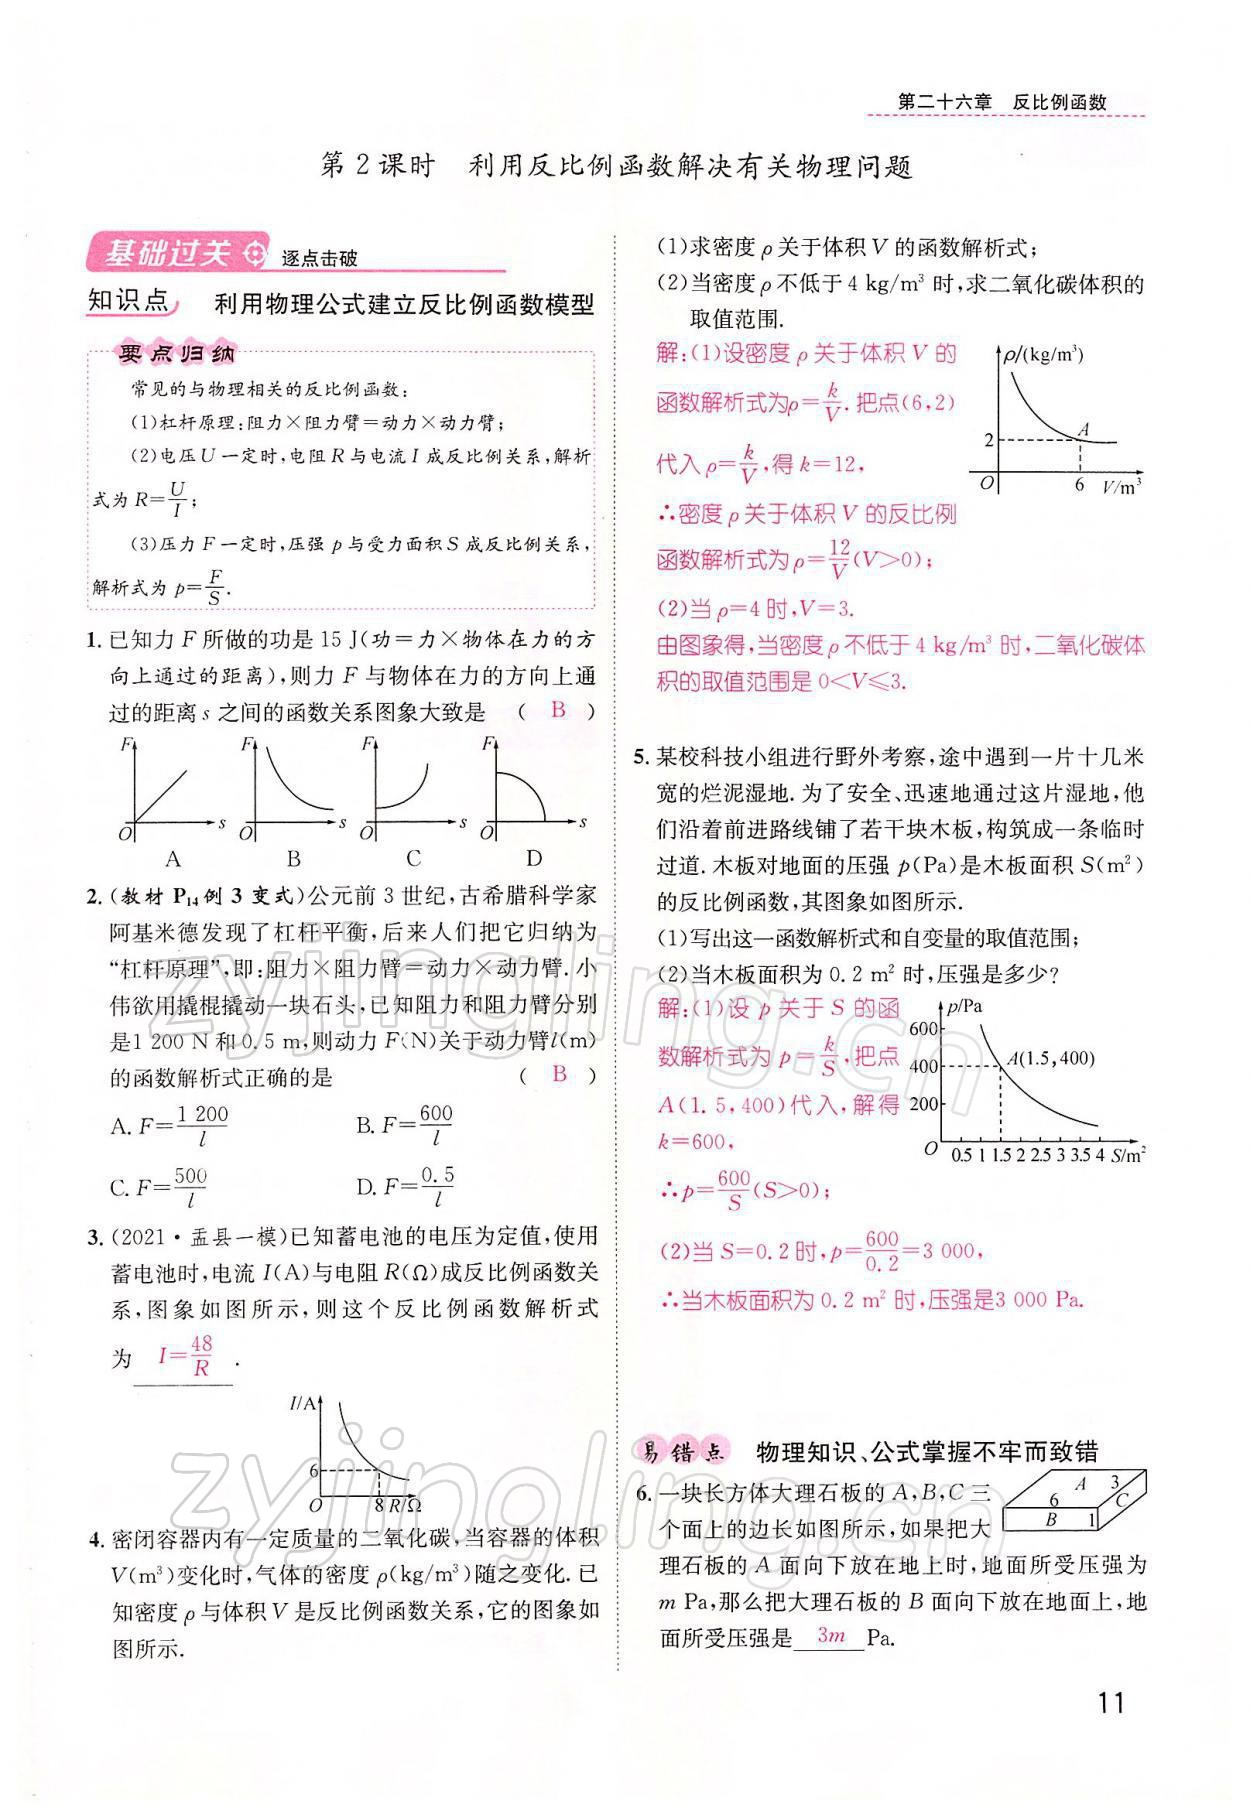 第二十六章　反比例函数
第 2 课时　利用反比例函数解决有关物理问题
基础过关　逐点击破
知识点　利用物理公式建立反比例函数模型
要点归纳
常见的与物理相关的反比例函数:
(1)杠杆原理:阻力×阻力臂=动力×动力臂;
(2)电压 U 一定时,电阻 R 与电流 I 成反比例关系,解析
式为 R=U/I;
(3)压力 F 一定时,压强 p 与受力面积 S 成反比例关系,
解析式为 p=F/S.
1. 已知力 F 所做的功是 15 J(功=力×物体在力的方
向上通过的距离),则力 F 与物体在力的方向上通
过的距离 s 之间的函数关系图象大致是　( B )
F F F F
O s O s O s O s
A B C D
2. (教材 P14 例 3 变式)公元前 3 世纪,古希腊科学家
阿基米德发现了杠杆平衡,后来人们把它归纳为
“杠杆原理”,即:阻力×阻力臂=动力×动力臂. 小
伟欲用撬棍撬动一块石头,已知阻力和阻力臂分别
是1 200 N 和 0. 5 m,则动力 F(N)关于动力臂l(m)
的函数解析式正确的是　( B )
A. F=1 200/l　B. F=600/l
C. F=500/l　D. F=0. 5/l
3. (2021·盂县一模)已知蓄电池的电压为定值,使用
蓄电池时,电流 I(A)与电阻 R(Ω)成反比例函数关
系,图象如图所示,则这个反比例函数解析式
为 I=48/R .
I/A
6
O 8 R/Ω
4. 密闭容器内有一定质量的二氧化碳,当容器的体积
V(m³)变化时,气体的密度 ρ(kg/m³)随之变化. 已
知密度 ρ 与体积 V 是反比例函数关系,它的图象如
图所示.
(1)求密度 ρ 关于体积 V 的函数解析式;
(2)当密度 ρ 不低于 4 kg/m³ 时,求二氧化碳体积的
取值范围.
解:(1)设密度 ρ 关于体积 V 的
函数解析式为ρ=k/V. 把点(6,2)
代入 ρ=k/V,得 k=12,
∴密度 ρ 关于体积 V 的反比例
函数解析式为 ρ=12/V(V>0);
(2)当 ρ=4 时,V=3.
由图象得,当密度 ρ 不低于 4 kg/m³ 时,二氧化碳体
积的取值范围是 0<V≤3.
ρ/(kg/m³)
2 A
O 6 V/m³
5. 某校科技小组进行野外考察,途中遇到一片十几米
宽的烂泥湿地. 为了安全、迅速地通过这片湿地,他
们沿着前进路线铺了若干块木板,构筑成一条临时
过道. 木板对地面的压强 p(Pa)是木板面积 S(m²)
的反比例函数,其图象如图所示.
(1)写出这一函数解析式和自变量的取值范围;
(2)当木板面积为 0. 2 m² 时,压强是多少?
解:(1)设 p 关于 S 的函
数解析式为 p=k/S,把点
A(1. 5,400)代入,解得
k=600,
∴p=600/S(S>0);
(2)当 S=0. 2 时,p=600/0. 2=3 000,
∴当木板面积为 0. 2 m² 时,压强是3 000 Pa.
p/Pa
600
400 A(1.5,400)
200
O 0.5 1 1.5 2 2.5 3 3.5 4 S/m²
易错点　物理知识、公式掌握不牢而致错
6. 一块长方体大理石板的 A,B,C 三
个面上的边长如图所示,如果把大
理石板的 A 面向下放在地上时,地面所受压强为
m Pa,那么把大理石板的 B 面向下放在地面上,地
面所受压强是 3m Pa.
A 3
6 C
B 1
11
zyjingling.cn
zyjingling.cn